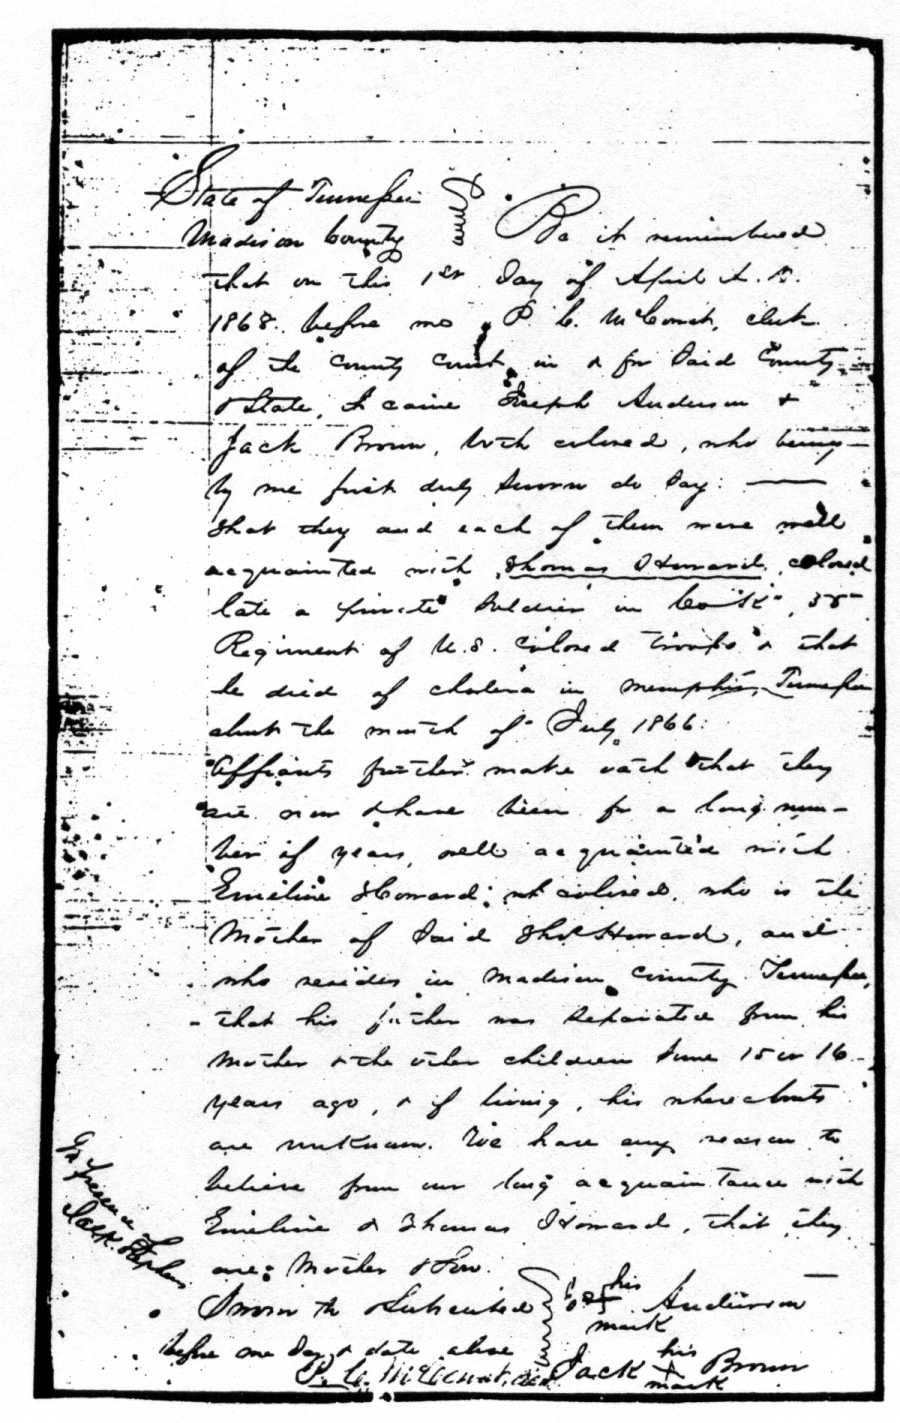 State of Tennessee
Madison County
Be it remembered
that on this 1st Day of April A. D.
1868. before me P. C. McCowat, clerk
of the County Court in & for Said County
& State, came Joseph Anderson &
Jack Brown, both colored, who being
by me first duly Sworn do Say:
That they and each of them were well
acquainted with Thomas Howard, colored
late a private Soldier in Co "K"
Regiment of U.S. Colored Troops & that
he died of cholera in Memphis, Tennessee
about the month of July, 1866.
Affiants further make oath that they
are now & have been for a long num-
ber of years, well acquainted with
Emeline Howard, colored, who is the
Mother of Said Thos Howard, and
who resides in Madison County Tennessee,
that his father was Separated from his
Mother & the other children Some 15 or 16
years ago, & if living, his whereabouts
are unknown. We have every reason to
believe from our long acquaintance with
Emeline & Thomas Howard, that they
are Mother & Son.
Sworn to & Subscribed
before me Day & date above
P. C. McCowat, Clk
his
Jo + Anderson
mark
his
Jack + Brown
mark
In presence of
Jack Stephens